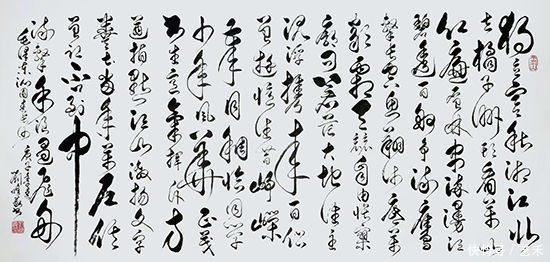 独立寒秋湘江北
去橘子洲头看万山
红遍层林尽染漫江
碧透百舸争流鹰
击长空鱼翔浅底万
类霜天竞自由怅寥
廓问苍茫大地谁主
沉浮携来百侣
曾游忆往昔峥嵘
岁月稠恰同学
少年风华正茂
书生意气挥斥方
遒指点江山激扬文字
粪土当年万户侯
曾记否到中
流击水浪遏飞舟
毛泽东沁园春长沙